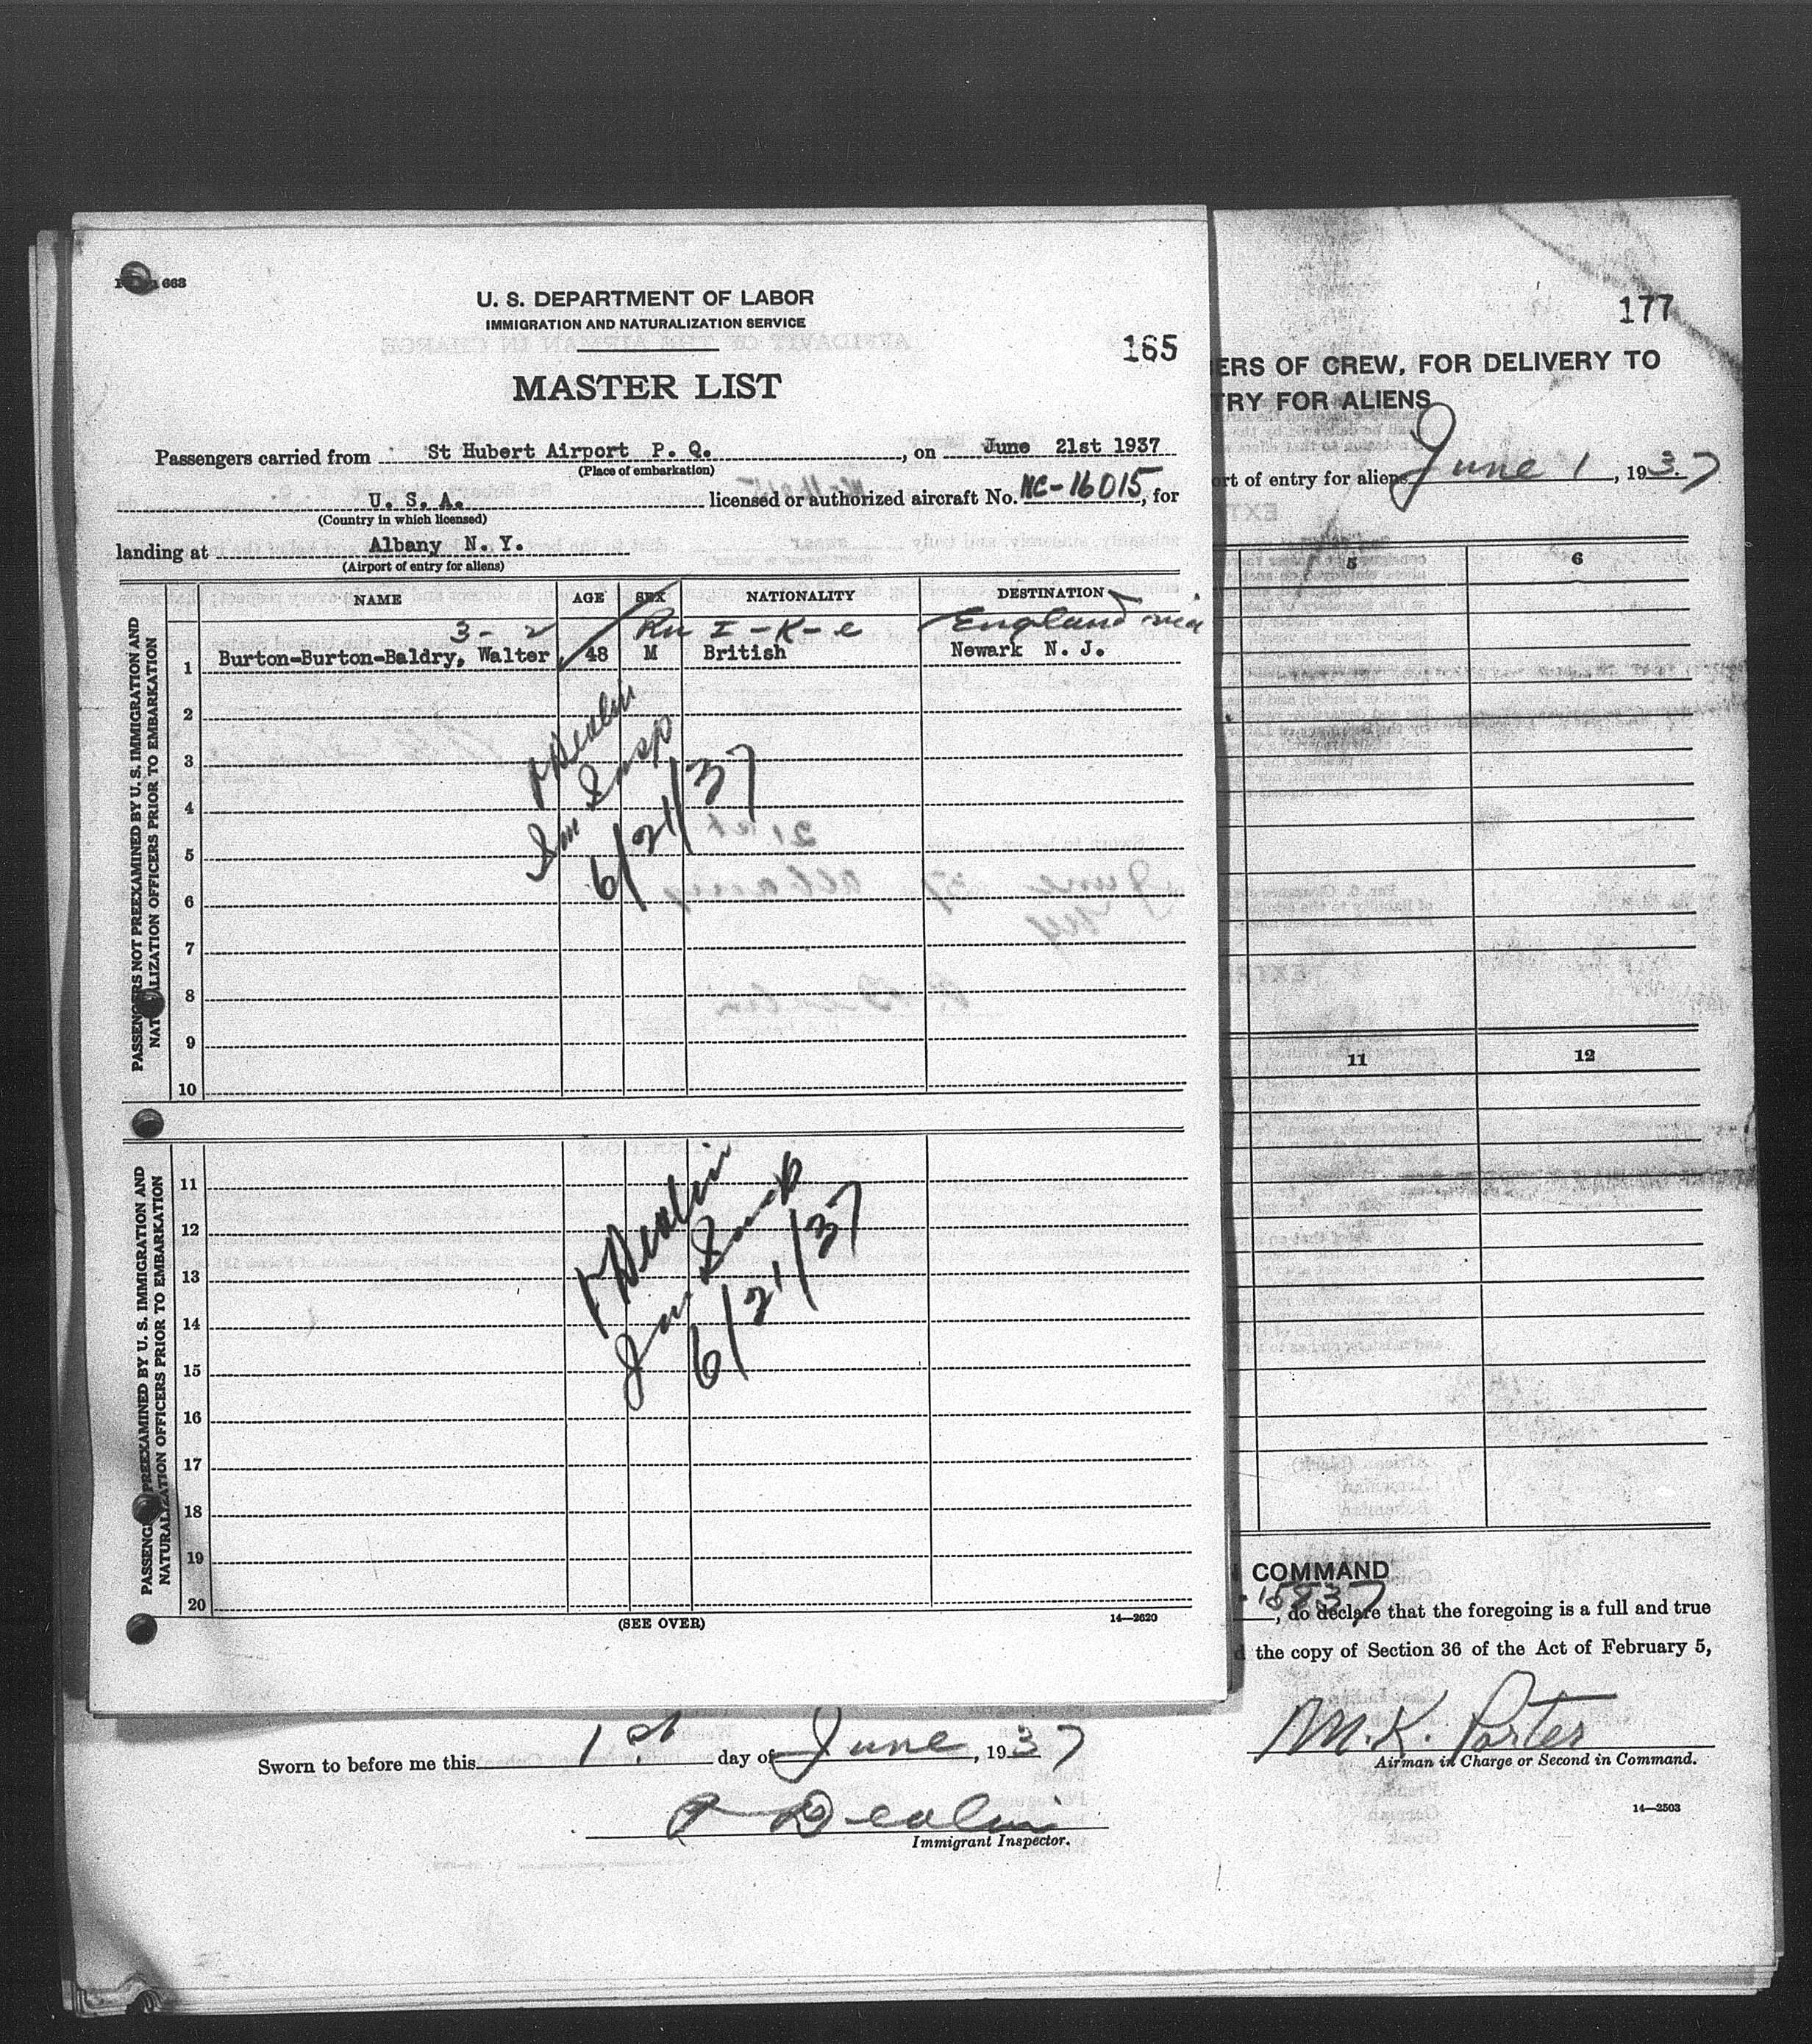 663
U. S. DEPARTMENT OF LABOR
IMMIGRATION AND NATURALIZATION SERVICE
165
MASTER LIST
Passengers carried from St Hubert Airport P. Q., on June 21st 1937
(Place of embarkation)
U. S. A. licensed or authorized aircraft No. NC-16015, for
(Country in which licensed)
landing at Albany N. Y.
(Airport of entry for aliens)
NAME AGE SEX NATIONALITY DESTINATION
3-2 I-K-e England via
1 Burton-Burton-Baldry, Walter 48 M British Newark N. J.
2
3
4
5
6
7
8
9
10
Dealin
Im Insp
6/21/37
PASSENGERS NOT PREEXAMINED BY U. S. IMMIGRATION AND
NATURALIZATION OFFICERS PRIOR TO EMBARKATION
11
12
13
14
15
16
17
18
19
20
Dealin
Im Insp
6/21/37
PREEXAMINED BY U. S. IMMIGRATION AND
NATURALIZATION OFFICERS PRIOR TO EMBARKATION
(SEE OVER)
14—2620
177
ERS OF CREW, FOR DELIVERY TO
TRY FOR ALIENS
ort of entry for aliens June 1, 1937
5 6
11 12
COMMAND
15837
, do declare that the foregoing is a full and true
the copy of Section 36 of the Act of February 5,
M. K. Porter
Airman in Charge or Second in Command.
Sworn to before me this 1st day of June, 1937
Dealin
Immigrant Inspector.
14—2503